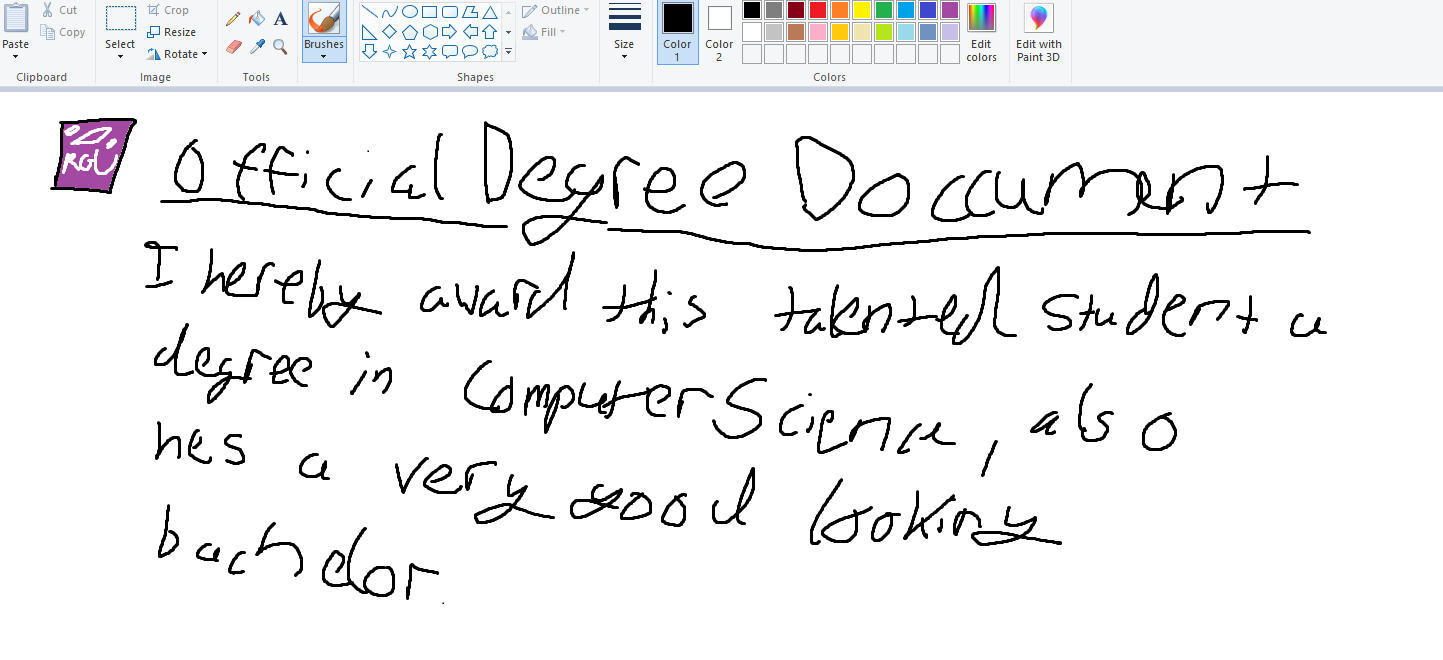 Paste
Cut
Copy
Clipboard
Select
Crop
Resize
Rotate
Image
Tools
Brushes
Shapes
Outline
Fill
Size
Color 1
Color 2
Colors
Edit colors
Edit with Paint 3D
RGU
Official Degree Document
I hereby award this talented student a
degree in Computer Science, also
hes a very good looking
bachelor.